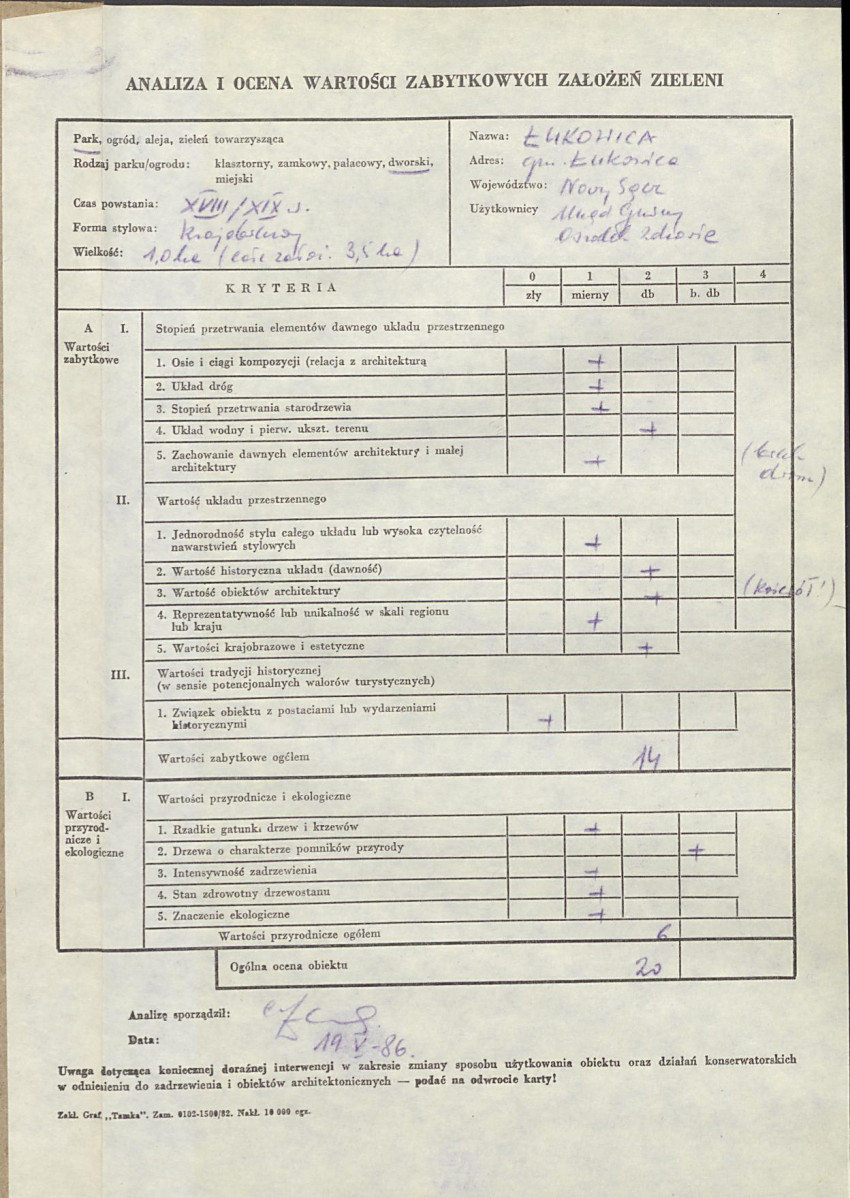 ANALIZA I OCENA WARTOŚCI ZABYTKOWYCH ZAŁOŻEŃ ZIELENI
Park, ogród, aleja, zieleń towarzysząca
Rodzaj parku/ogrodu: klasztorny, zamkowy, pałacowy, dworski,
miejski
Czas powstania: XVIII/XIX w.
Forma stylowa: krajobrazowy
Wielkość: 1,0 ha (całe założ. 3,5 ha)
Nazwa: ŁUKOWICA
Adres: gm. Łukowica
Województwo: Nowy Sącz
Użytkownicy Urząd Gminy
Ośrodek Zdrowia
KRYTERIA
0 1 2 3 4
zły mierny db b. db
A I. Stopień przetrwania elementów dawnego układu przestrzennego
Wartości
zabytkowe
1. Osie i ciągi kompozycji (relacja z architekturą +
2. Układ dróg +
3. Stopień przetrwania starodrzewia +
4. Układ wodny i pierw. ukszt. terenu +
5. Zachowanie dawnych elementów architektury i małej
architektury +
(brak
dworu)
II. Wartość układu przestrzennego
1. Jednorodność stylu całego układu lub wysoka czytelność
nawarstwień stylowych +
2. Wartość historyczna układu (dawność) +
3. Wartość obiektów architektury + (kościół!)
4. Reprezentatywność lub unikalność w skali regionu
lub kraju +
5. Wartości krajobrazowe i estetyczne +
III. Wartości tradycji historycznej
(w sensie potencjonalnych walorów turystycznych)
1. Związek obiektu z postaciami lub wydarzeniami
historycznymi +
Wartości zabytkowe ogółem 14
B I. Wartości przyrodnicze i ekologiczne
Wartości
przyrod-
nicze i
ekologiczne
1. Rzadkie gatunki drzew i krzewów +
2. Drzewa o charakterze pomników przyrody +
3. Intensywność zadrzewienia +
4. Stan zdrowotny drzewostanu +
5. Znaczenie ekologiczne +
Wartości przyrodnicze ogółem 6
Ogólna ocena obiektu 20
Analizę sporządził:
Data: 19 V-86.
Uwaga dotycząca koniecznej doraźnej interwencji w zakresie zmiany sposobu użytkowania obiektu oraz działań konserwatorskich
w odniesieniu do zadrzewienia i obiektów architektonicznych — podać na odwrocie karty!
Zakł. Graf. „Tamka". Zam. 0102-1500/82. Nakł. 10 000 egz.